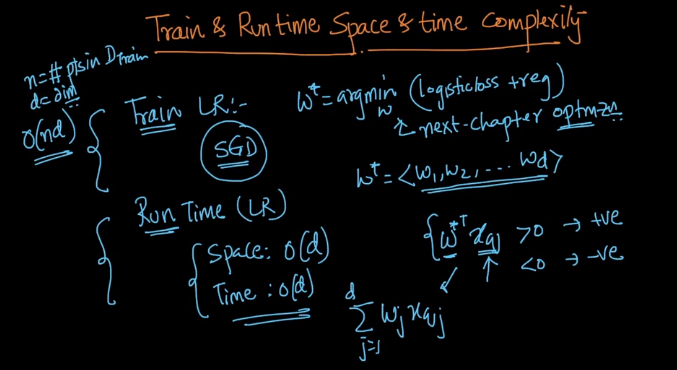 Train & Runtime Space & time Complexity
n = # pts in Dtrain
d = dim
O(nd) { Train LR:-
SGD
w* = argmin_w (logisticloss + reg)
↳ next-chapter optmzn
w* = <w₁, w₂, ... wd>
{ Run Time (LR)
{ Space: O(d)
Time: O(d)
{ w*ᵀ xq > 0 → +ve
< 0 → -ve
d
Σ wj xqj
j=1